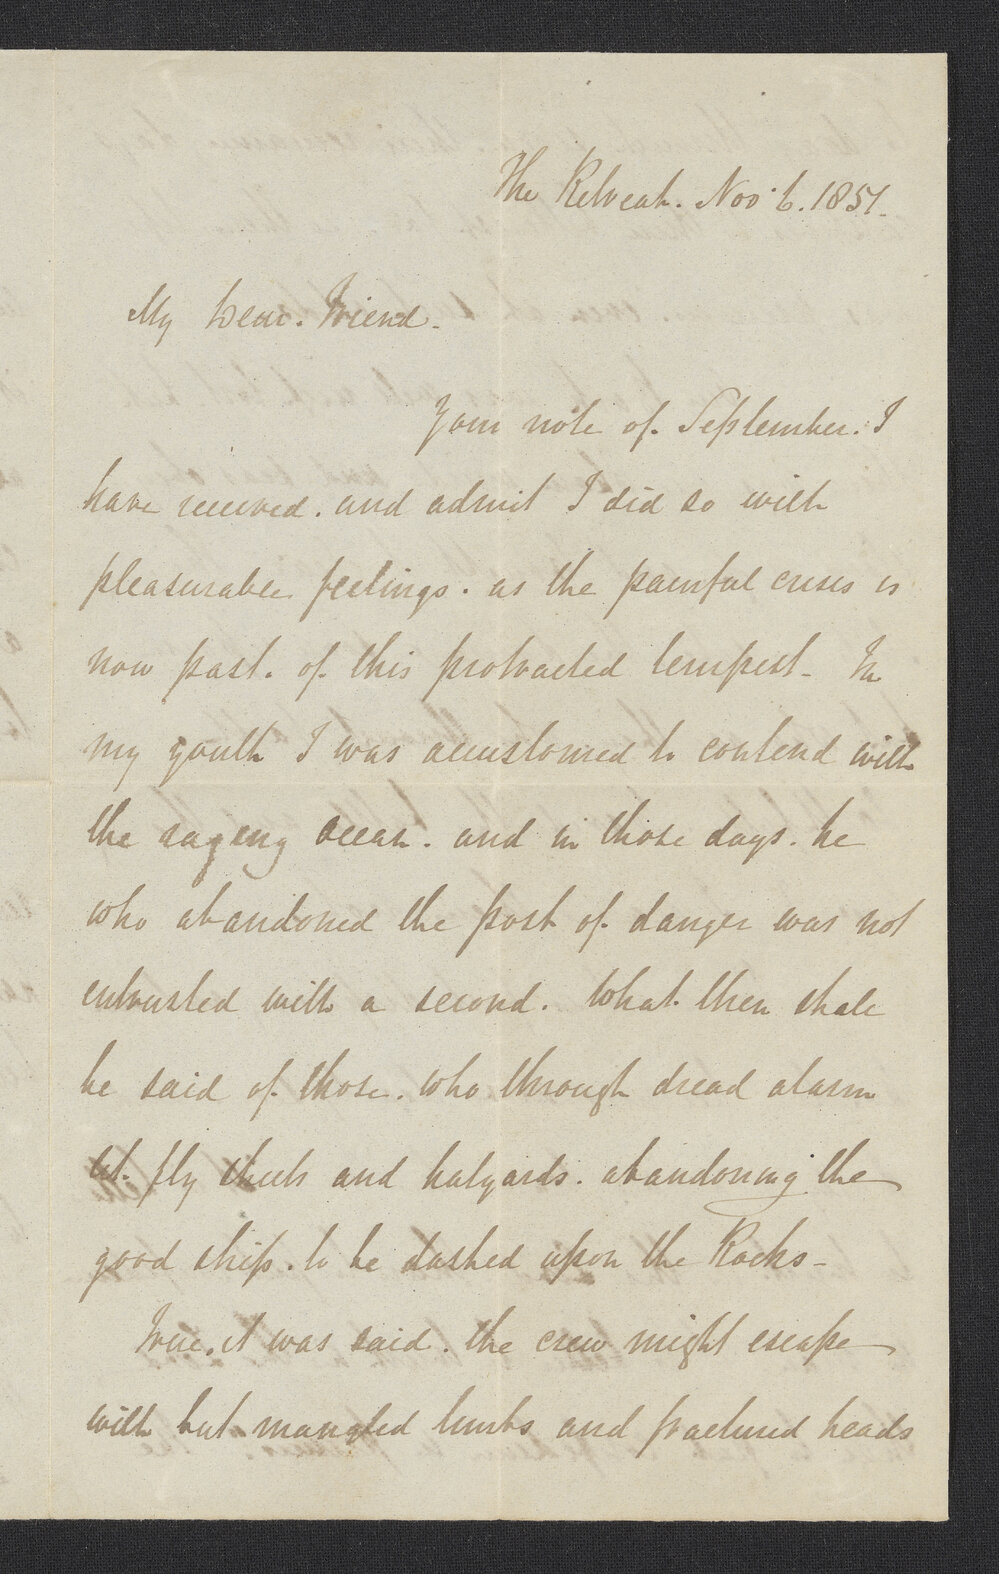 The Retreat. Nov 6. 1851.
My Dear. Friend.
Your note of. September. I
have received. and admit I did so with
pleasurable feelings. as the painful crisis is
now past. of this protracted tempest - In
my youth I was accustomed to contend with
the raging ocean. and in those days. he
who abandoned the post of. danger was not
entrusted with a second. What then shall
be said of. those. who through dread alarm
let. fly sheets and halyards. abandoning the
good ship. to be dashed upon the Rocks -
True. it was said. the crew might escape
with but mangled limbs and fractured heads